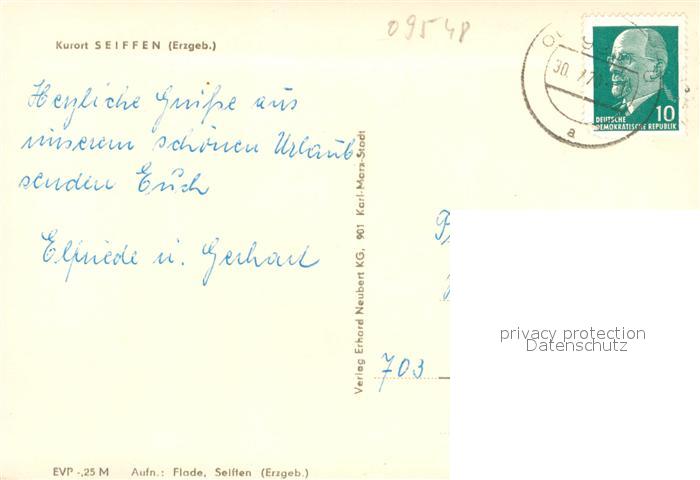 09548
Kurort SEIFFEN (Erzgeb.)
30.
10
DEUTSCHE
DEMOKRATISCHE REPUBLIK
a
Herzliche Grüße aus
unserem schönen Urlaub
senden Euch
Elfriede u. Gerhart
Verlag Erhard Neubert KG, 901 Karl-Marx-Stadt
703
privacy protection
Datenschutz
EVP -,25 M Aufn.: Flade, Seiffen (Erzgeb.)